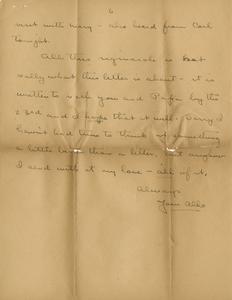 6
visit with Mary - also heard from Carl
tonight.
All this rigmarole is not
really what this letter is about - it is
written to be with you and Papa by the
23rd and I hope that it will. Sorry I
haven't had time to think up something
a little better than a letter, but anyhow
I send with it my love - all of it.
Always
Your